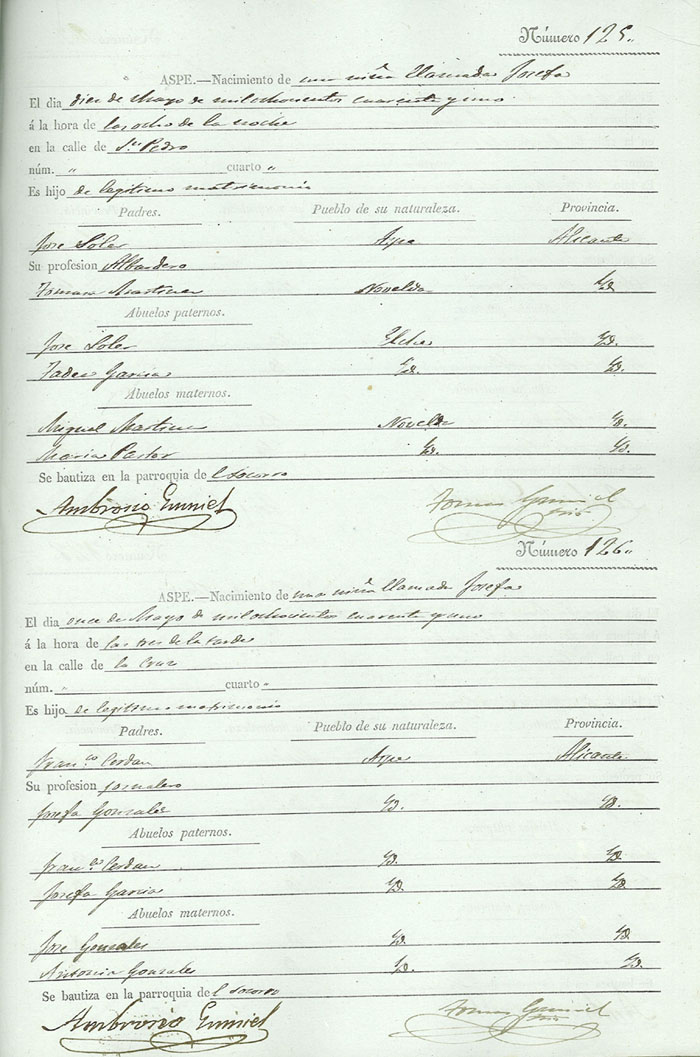 Número 125.
ASPE.—Nacimiento de una niña llamada Josefa
El dia diez de Mayo de mil ochocientos cuarenta y uno
á la hora de las ocho de la noche
en la calle de Sn Pedro
núm. " cuarto "
Es hijo de legitimo matrimonio
Padres. Pueblo de su naturaleza. Provincia.
Jose Soler Aspe Alicante
Su profesion Albardero
Tomasa Martinez Novelda Yd.
Abuelos paternos.
Jose Soler Elche Yd.
Garcia Yd. Yd.
Abuelos maternos.
Miguel Martinez Novelda Yd.
Maria Pastor Yd. Yd.
Se bautiza en la parroquia del Socorro
Ambrosio Tomas
Número 126.
ASPE.—Nacimiento de una niña llamada Josefa
El dia once de Mayo de mil ochocientos cuarenta y uno
á la hora de las tres de la tarde
en la calle de la Cruz
núm. " cuarto "
Es hijo de legitimo matrimonio
Padres. Pueblo de su naturaleza. Provincia.
Franco Cerdan Aspe Alicante
Su profesion jornalero
Josefa Gonzales Yd. Yd.
Abuelos paternos.
Franco Cerdan Yd. Yd.
Josefa Garcia Yd. Yd.
Abuelos maternos.
Jose Gonzales Yd. Yd.
Antonia Gonzales Yd. Yd.
Se bautiza en la parroquia del Socorro
Ambrosio Tomas